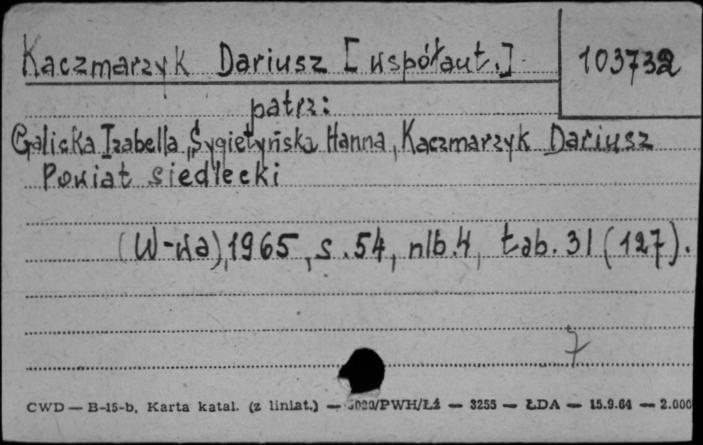 Kaczmarzyk Dariusz [współaut.]
103732
patrz:
Galicka Izabella, Sygietyńska Hanna, Kaczmarzyk Dariusz
Powiat siedlecki
(W-wa), 1965, s. 54, nlb. 4, tab. 31 (127).
7
CWD — B-15-b, Karta katal. (z liniat.) — /PWH/Łź — 3255 — ŁDA — 15.9.64 — 2.000